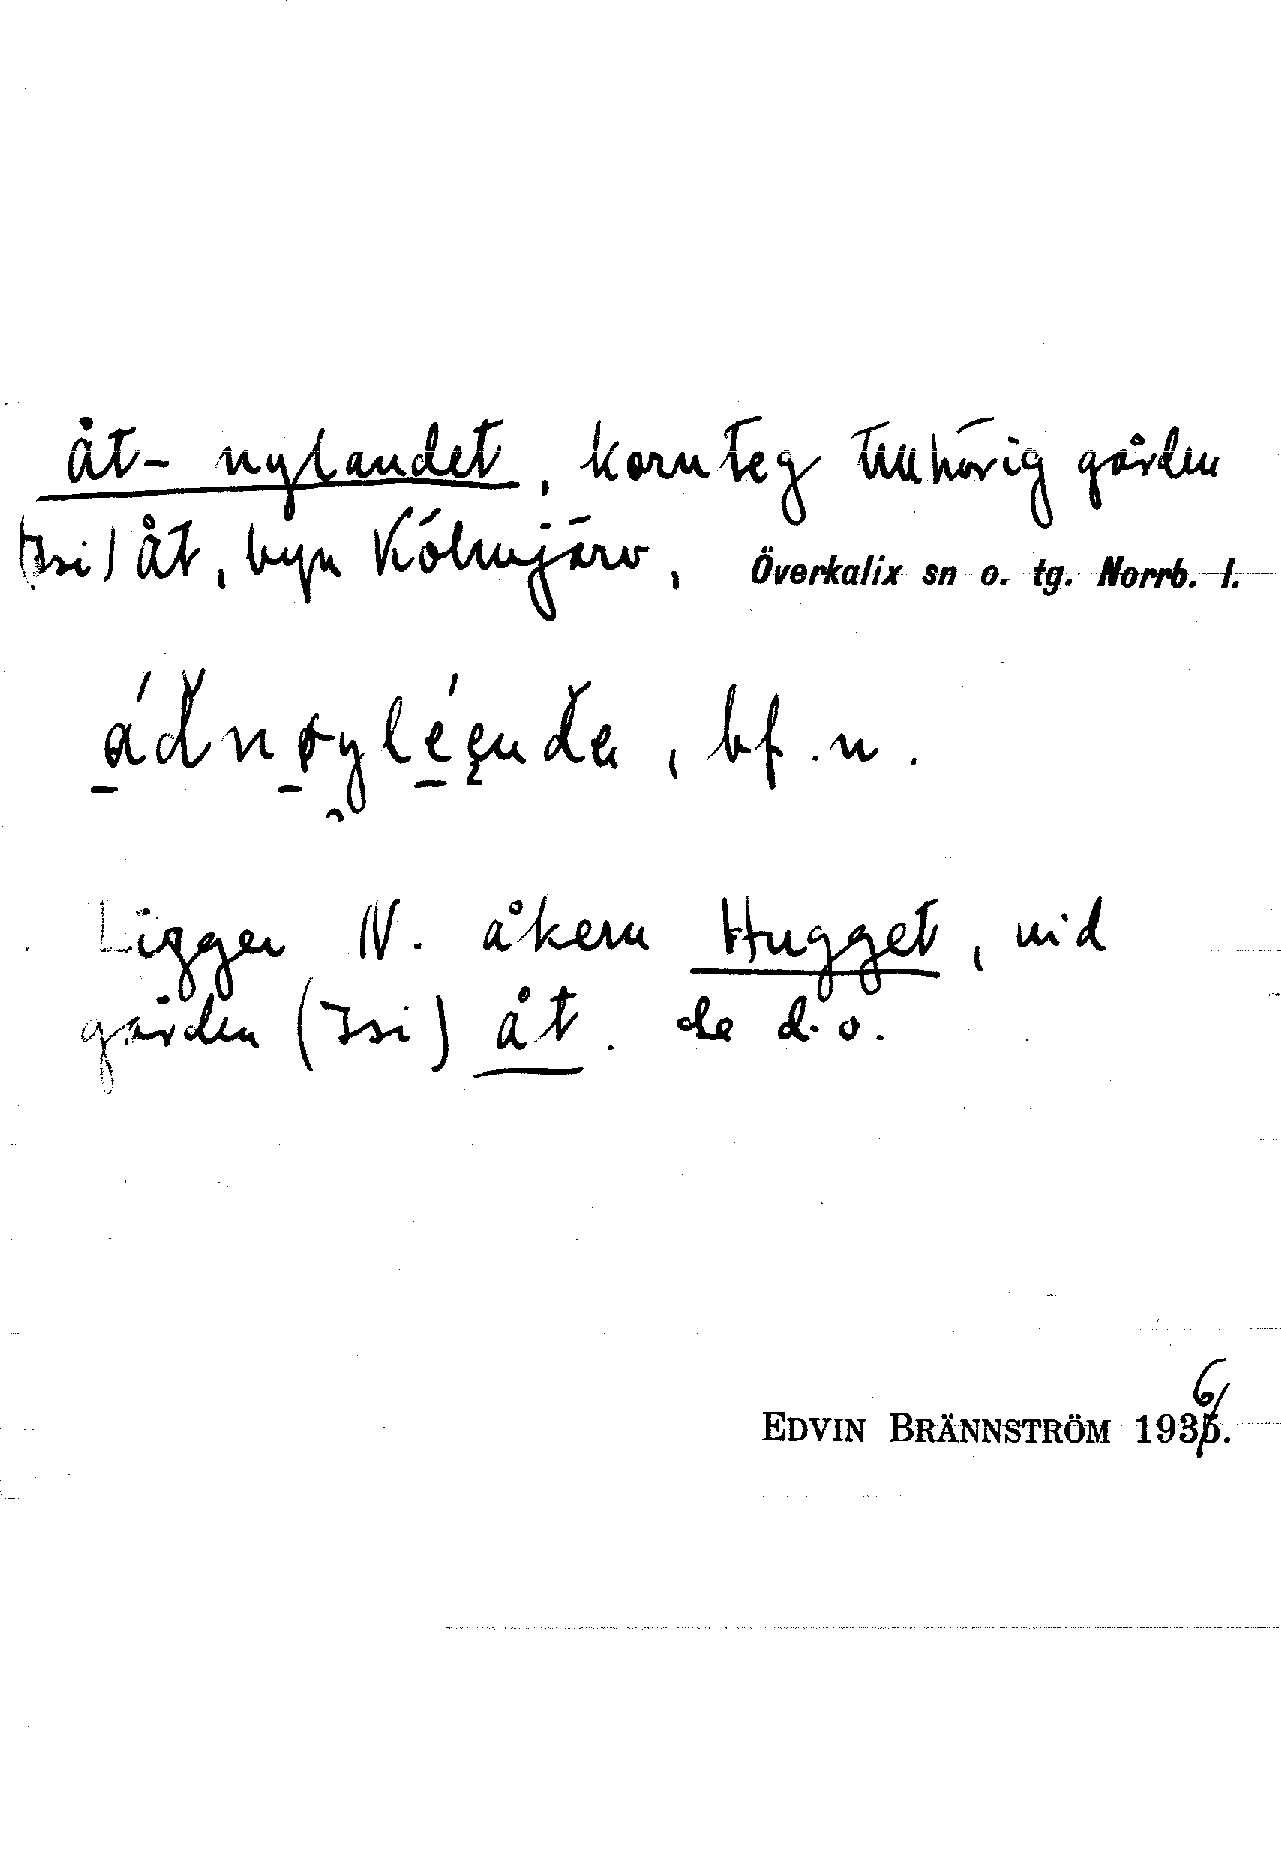 åt-nylandet, kornteg tillhörig gården
(Isi) åt, byn Kölmjärv, Överkalix sn o. tg. Norrb. l.
bf. n.
Ligger N. åkern Hugget, vid
gården (Isi) åt. se d. o.
EDVIN BRÄNNSTRÖM 1936.